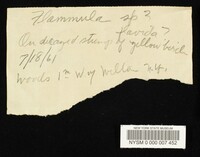 Flammula sp?
flavida?
On decayed stump of yellow birch
7/18/61
Woods 1 m W of Miller N.Y.
NEW YORK STATE MUSEUM
NYSM 0 000 007 452